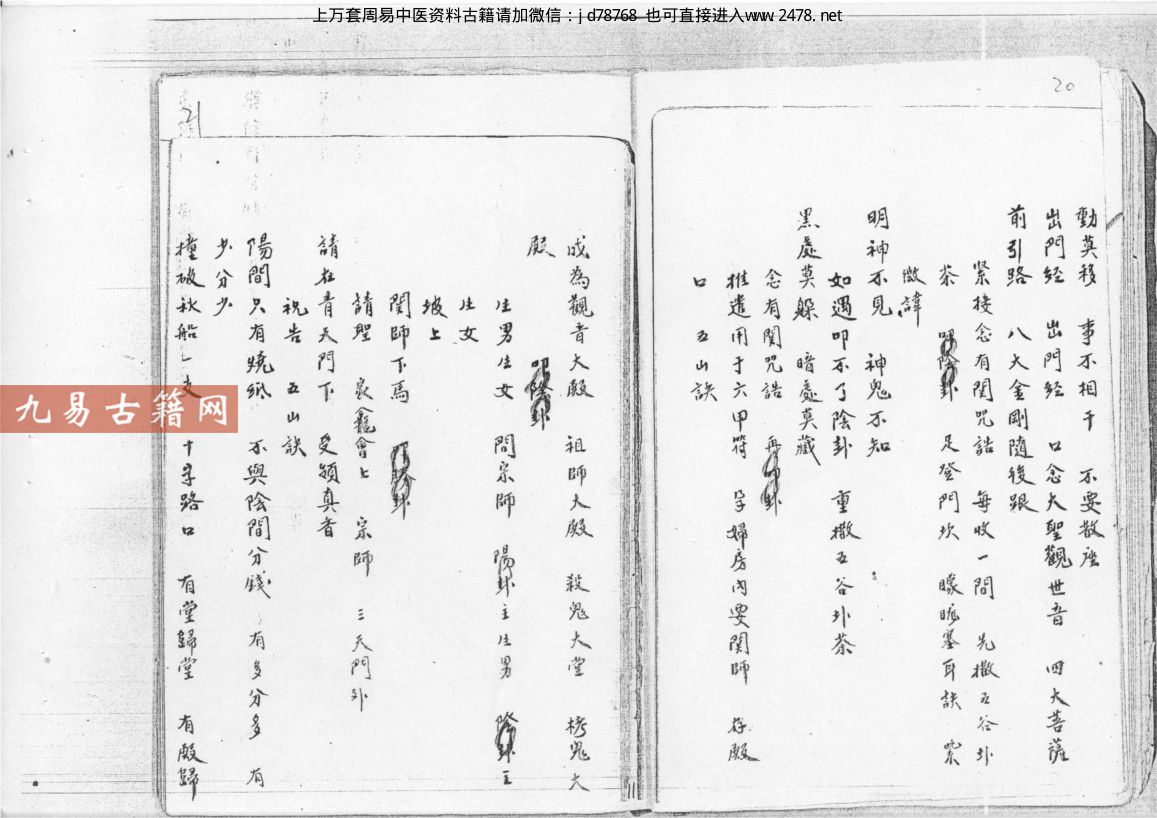 上万套周易中医资料古籍请加微信：jd78768 也可直接进入www.2478.net
20
動莫移 事不相干 不要散座
出門经 出門经 口念大聖觀世音 四大菩薩
前引路 八大金剛隨後跟
紧接念有関咒誥 每收一間 先撒五谷卦
茶 叩陰卦 足登門坎 矇眬塞耳訣 紫
微諱
明神不見 神鬼不知
如遇叩不了陰卦 重撒五谷卦茶
黑處莫躲 暗處莫藏
念有関咒誥 再叩卦
推遣用于六甲符 孕婦房内要関師 存殿
口 五山訣
21
成為觀音大殿 祖師大殿 殺鬼大堂 栲鬼大
殿 叩陰卦
生男生女 問宗師 陽卦主生男 陰卦主
生女
坡上
関師下馬 叩陽卦
請聖 會上 宗師 三天門外
請在青天門下 受領真香
祝告 五山訣
陽間只有燒紙 不與陰間分錢 有多分多 有
少分少
撞破秋船一支 十字路口 有堂歸堂 有殿歸
九易古籍网